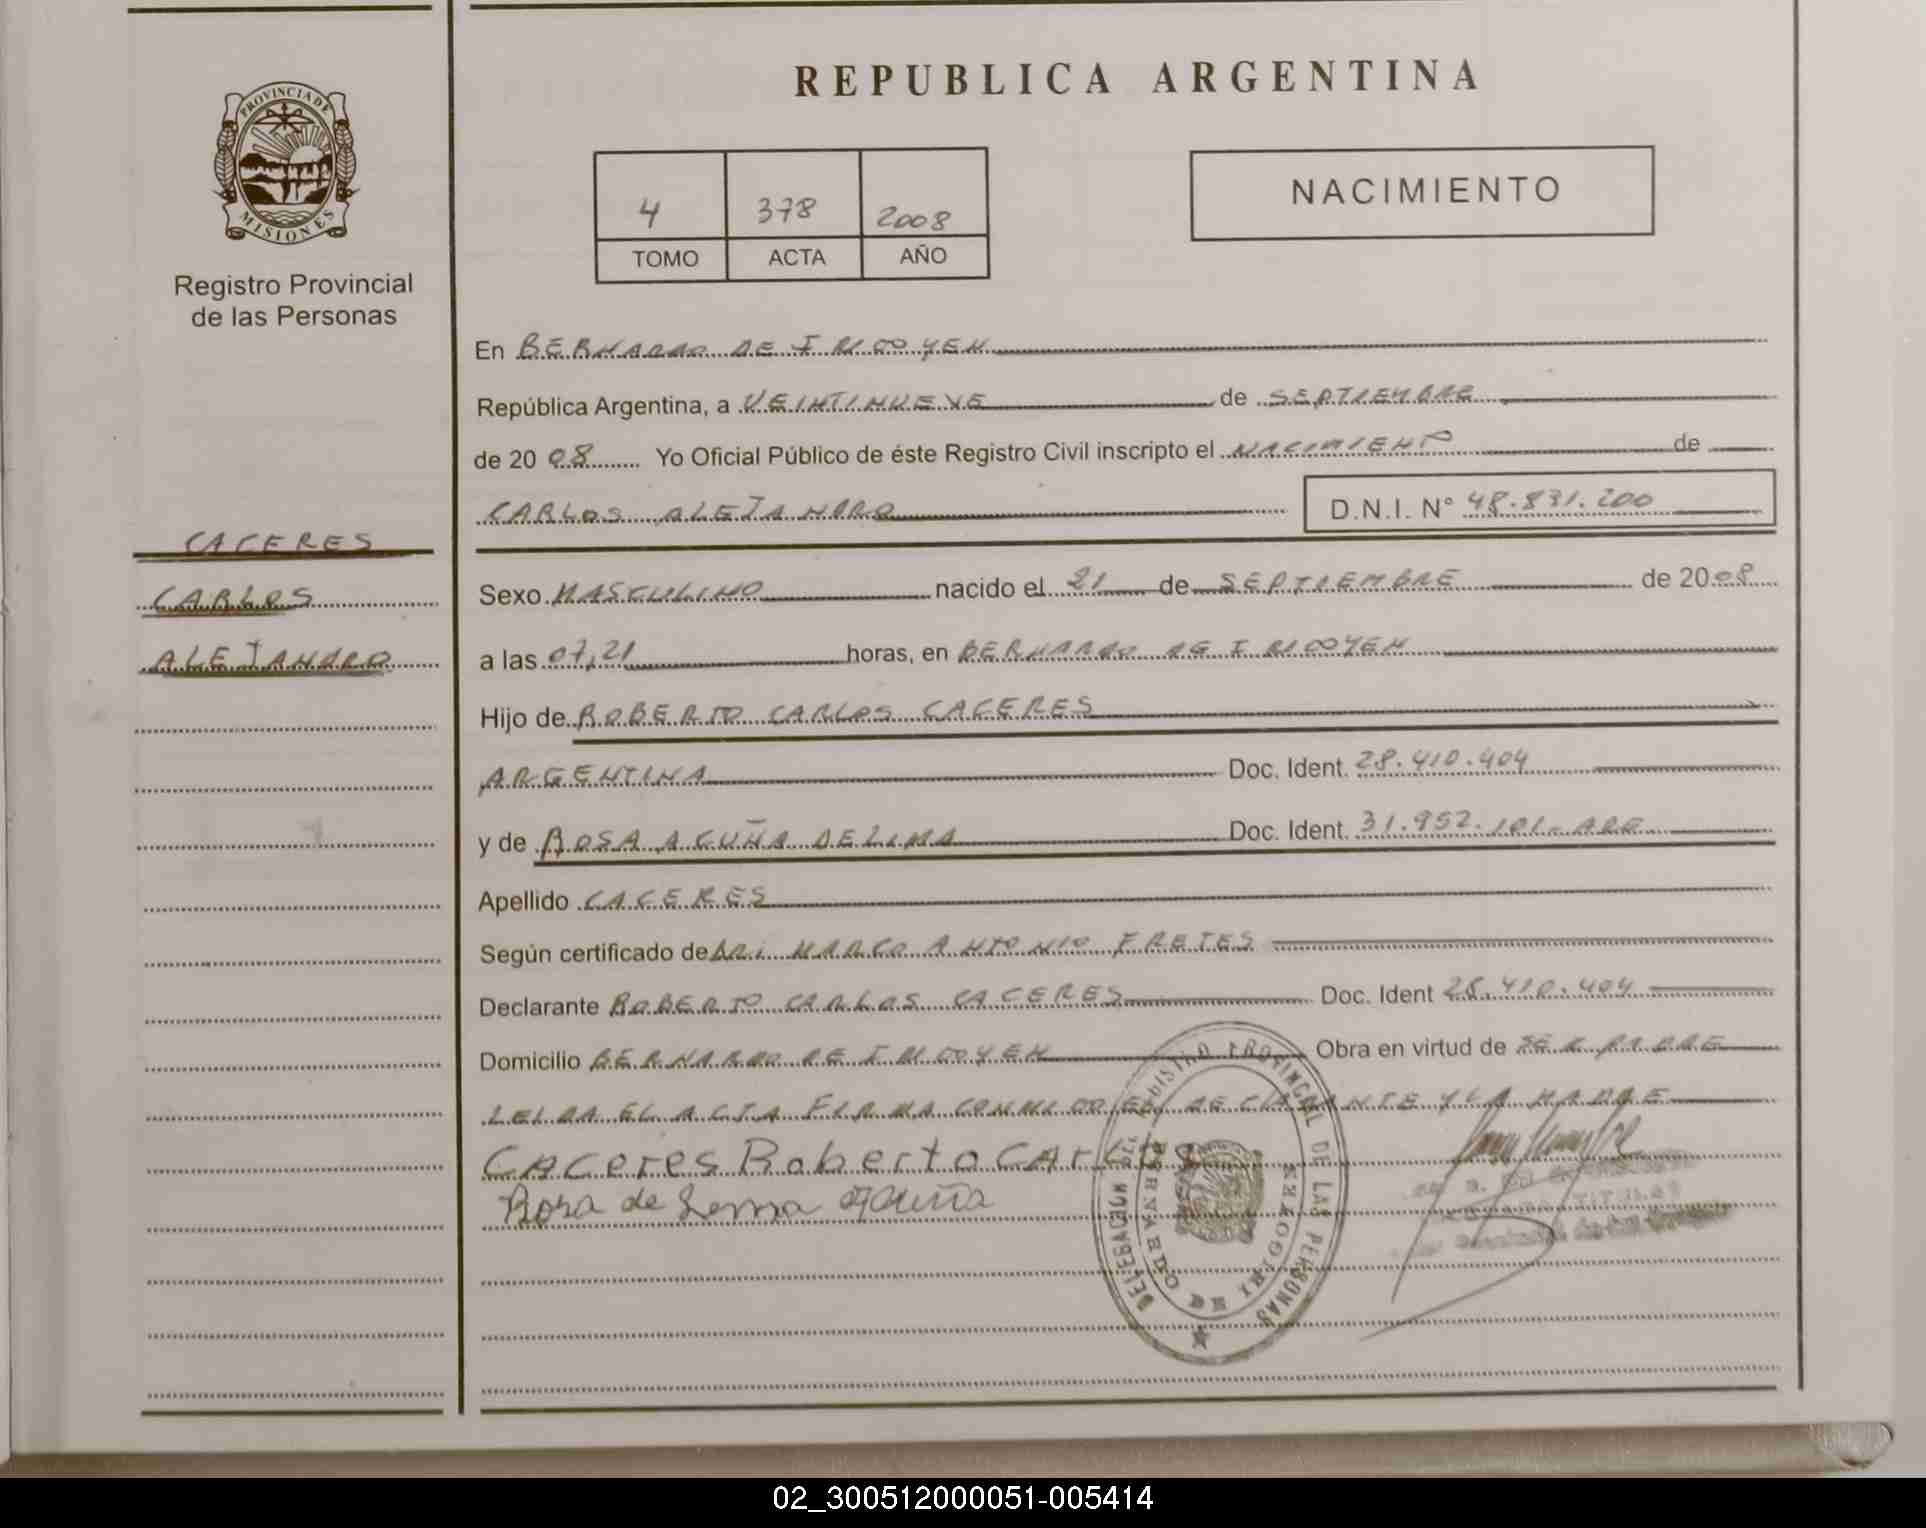 REPUBLICA ARGENTINA
PROVINCIA DE
MISIONES
Registro Provincial
de las Personas
4 378 2008
TOMO ACTA AÑO
NACIMIENTO
En BERNARDO DE IRIGOYEN
República Argentina, a VEINTINUEVE de SEPTIEMBRE
de 20 08 Yo Oficial Público de éste Registro Civil inscripto el NACIMIENTO de
CARLOS ALEJANDRO D.N.I. N° 48.831.200
CACERES
CARLOS
ALEJANDRO
Sexo MASCULINO nacido el 21 de SEPTIEMBRE de 20 08
a las 07,21 horas, en BERNARDO DE IRIGOYEN
Hijo de ROBERTO CARLOS CACERES
ARGENTINA Doc. Ident. 28.410.404
y de ROSA ACUÑA DELIMA Doc. Ident. 31.952.101-
Apellido CACERES
Según certificado de DR. MARCO ANTONIO FRETES
Declarante ROBERTO CARLOS CACERES Doc. Ident 28.410.404
Domicilio BERNARDO DE IRIGOYEN Obra en virtud de SER PADRE
LEIDA EL ACTA FIRMA CONMIGO EL DECLARANTE Y LA MADRE
CACeres Roberto CArLos
Rosa de Lema Acuña
DELEGACION DEL REGISTRO PROVINCIAL DE LAS PERSONAS
BERNARDO DE IRIGOYEN
02_300512000051-005414